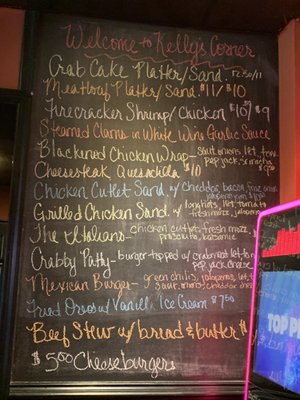 Welcome to Kelly's Corner
Crab Cake Platter/Sand. 12.50/11
Meatloaf Platter/Sand. $11/$10
Firecracker Shrimp/Chicken $10/$9
Steamed Clams in White Wine Garlic Sauce
Blackened Chicken Wrap- saut. onions, let, tom,
pepjack, sriracha
Cheesesteak Quesadilla $10
Chicken Cutlet Sand. w/ cheddar, bacon,
Grilled Chicken Sand. w/ let, tomato
fresh mozz,
The Italians- chicken cutlet, fresh mozz,
prosciutto, balsamic
Crabby Patty- burger topped w/ crabmeat, let, tom
pepjack cheese
Mexican Burger- green chilis, jalapenos, let,
cheddar
Fried Oreos w/ Vanilla Ice Cream $7.50
Beef Stew w/ bread & butter $
$5.00 Cheeseburgers
TOP